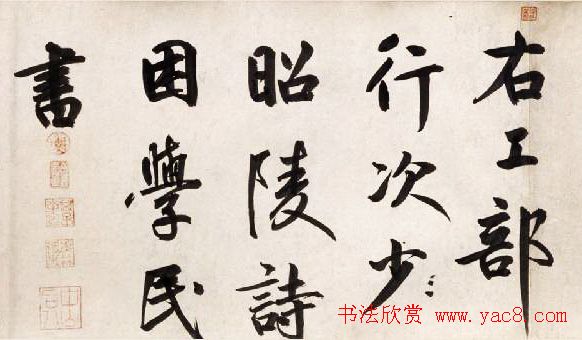 右工部
行次少
昭陵詩
困學民
書
书法欣赏 www.yac8.com